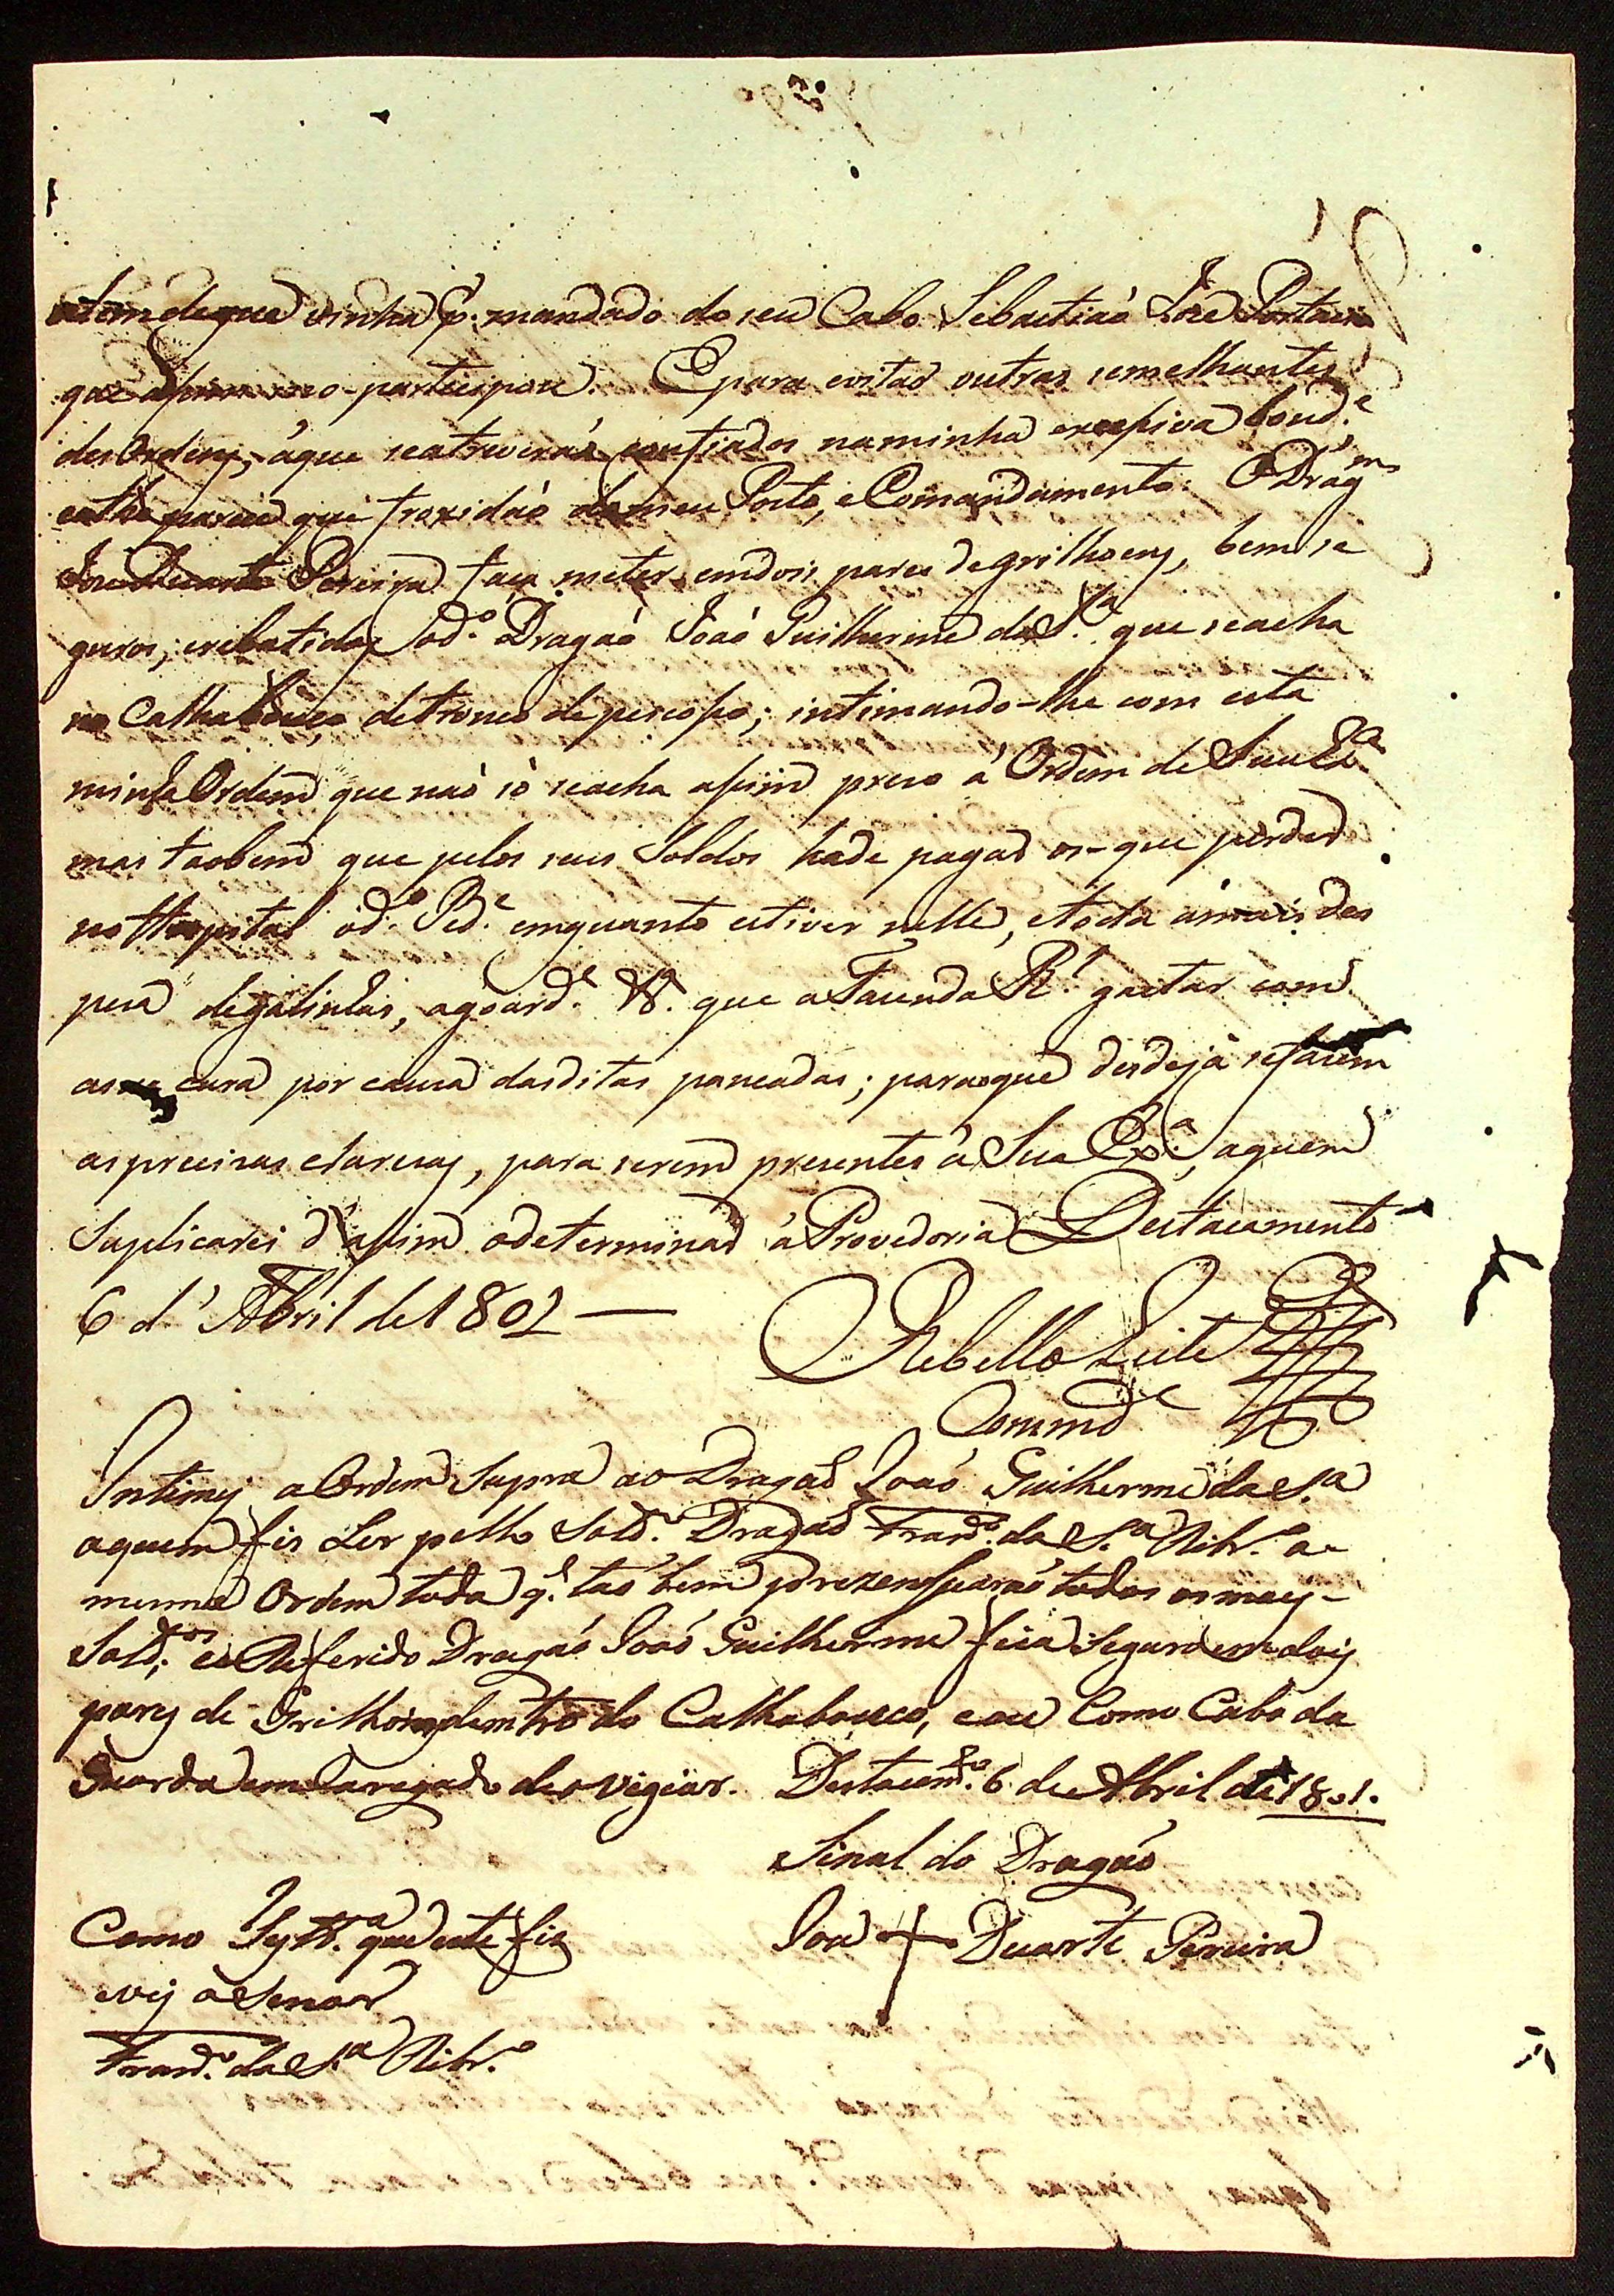 alem de que vinha p.r mandado do seu Cabo Sebastiaõ Joze
que assim mo-participou. E para evitar outras semelhantes
desOrdens, áque seatreveraõ confiados naminha excessiva bond.e
e athe parece que froxidaõ domeu Posto, eComandamento: ODrag.m
Joze Duarte Pereira faça meter emdois pares degrilhoens, bem se
guros, erebatidos, od.o Dragaõ Joaõ Guilherme daS.a que seacha
no Calhabouço detronco depescoço; intimando-lhe com esta
minha Ordem que naõ só seacha assim prezo á Ordem de Sua Ex.a
mas taobem que pelos seus Soldos hade pagar os-que perder
no Hospital od.o Ped.e emquanto estiver nelle, etoda amais des
peza degalinhas, agoard.e &.a que aFazenda R.l gastar com
asua cura por cauza dasditas pancadas; paraoque desdejá sefacem
asprecizas clarezas, para serem prezentes á Sua Ex.a, aquem
Suplicarei d'assim odeterminar áProvedoria Destacamento
6 d'Abril de1801 —
Rebello Leite
Comm.de
Intimey aOrdem Supra ao Dragaõ Joaõ Guilherme daS.a
aquem fis Ler pello Sold.o Dragaõ Fran.co da S.a Ribr.o a-
mesma Ordem toda q.e taõbem prezenssearaõ todos osmays-
Sold.os eoRefferido Dragaõ Joaõ Guilherme fica Seguro em doiz
parez de Grilhoins dentro do Calhabouco, e eu Como Cabo da
Guarda emCaregado de o vigiar. Destacam.to 6 de Abril de 1801.
Sinal do Dragaõ
Joze + Duarte Pereira
Como Test.a que este fiz
evy aSenar
Fran.co da S.a Ribr.o